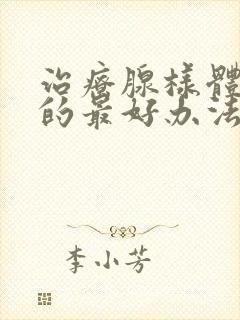 治療腺様體
的最好办法
李小芳